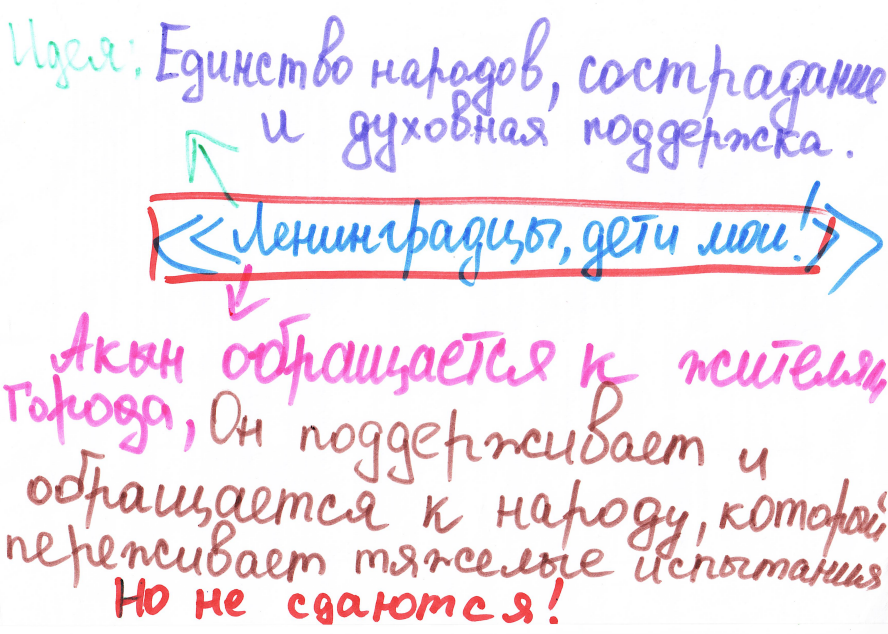 Идея: Единство народов, сострадание
и духовная поддержка.
<<Ленинградцы, дети мои!>>
Акын обращается к жителям
города, Он поддерживает и
обращается к народу, которой
переживает тяжелые испытания
Но не сдаются!